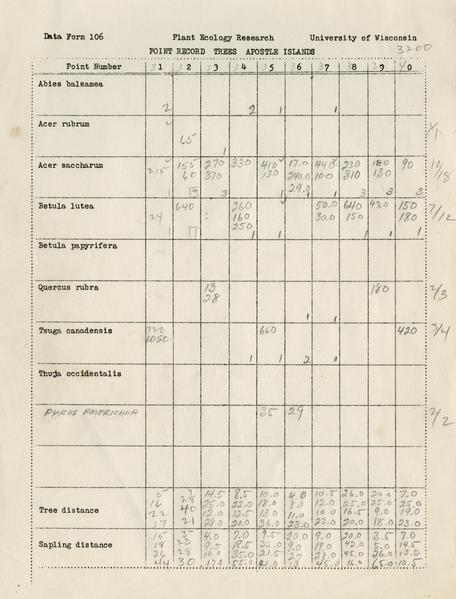 Data Form 106 Plant Ecology Research University of Wisconsin
3200
POINT RECORD TREES APOSTLE ISLANDS
Point Number 1 2 3 4 5 6 7 8 9 0
Abies balsamea
2 2 1 1
Acer rubrum
65
1
1/1
Acer saccharum 155 270 330 410 17.0 440 230 180 90 10/18
215 60 370 130 240.0 100 310 130
29.0
1 3 1 1 3 3 1
Betula lutea 640 260 50.0 640 430 150 7/12
24 160 30.0 150 180
250
1 1 1 1 1 1
Betula papyrifera
Quercus rubra 13 180 2/3
28
1 1
Tsuga canadensis 720 660 420 3/4
1050
1 1 2 1
Thuja occidentalis
Pyrus americana 35 29 2/2
14.5 8.5 10.0 4.0 10.5 26.0 20.0 7.0
16 28 25.0 22.0 18.0 8.0 12.0 25.0 25.0 25.0
Tree distance 22 40 12.0 12.5 18.0 11.0 10.0 16.5 9.0 19.0
17 21 28.0 20.0 36.0 23.0 22.0 20.0 18.0 23.0
15 4.0 7.0 9.5 20.0 9.0 20.0 3.5 7.0
Sapling distance 18 23 9.5 18.5 22.0 9.0 19.0 42.0 5.0 14.5
26 28 10.0 35.0 21.5 27 28.0 45.0 26.0 13.0
44 30 17.0 55.0 45.0 16. 65.0 10.5